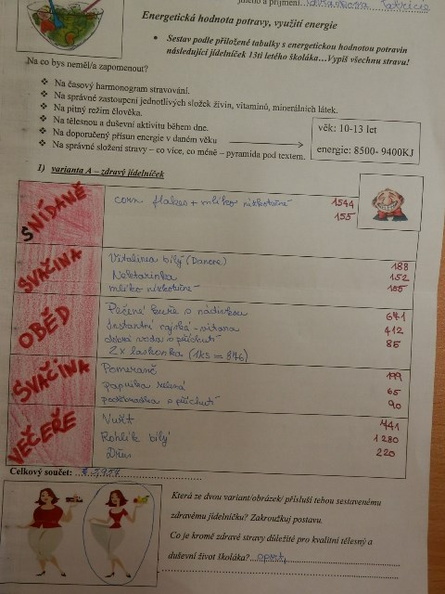 jméno a příjmení
Energetická hodnota potravy, využití energie
• Sestav podle přiložené tabulky s energetickou hodnotou potravin
následující jídelníček 13ti letého školáka...Vypiš všechnu stravu!
Na co bys neměl/s zapomenout?
❖ Na časový harmonogram stravování.
❖ Na správné zastoupení jednotlivých složek živin, vitamínů, minerálních látek.
❖ Na pitný režim člověka.
❖ Na tělesnou a duševní aktivitu během dne.
❖ Na doporučený přísun energie v daném věku
❖ Na správné složení stravy – co více, co méně – pyramida pod textem.
věk: 10-13 let
energie: 8500- 9400KJ
1) varianta A – zdravý jídelníček
SNÍDANĚ
corn flakes + mlíko nízkotučné 1544
155
SVAČINA
Vitalinea bílý (Danone) 188
Nektarinka 152
mlíko nízkotučné 155
OBĚD
Pečené kuře s nádivkou 671
Instantní rajská 412
voda s příchutí 85
2x laskonka (1ks = 876)
SVAČINA
Pomeranč 199
paprika zelená 65
s příchutí 90
VEČEŘE
Vuřt 441
Rohlík bílý 1280
220
Celkový součet:
Která se dvou variant/obrázek/ přísluší tebou sestavenému
zdravému jídelníčku? Zakroužkuj postavu.
Co je kromě zdravé stravy důležité pro kvalitní tělesný a
duševní život školáka? sport,